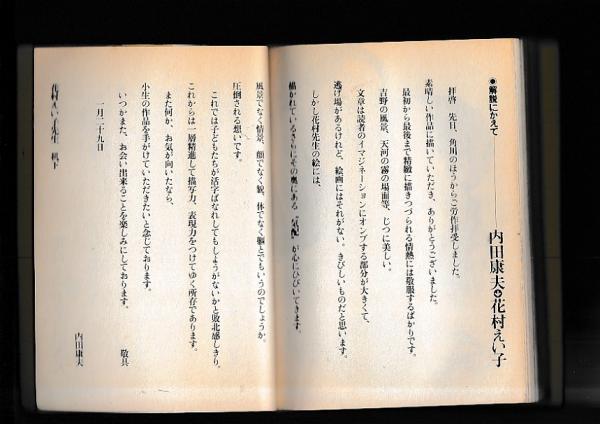 ●解説にかえて
――内田康夫●花村えい子
拝啓 先日、角川のほうからご労作拝受しました。
素晴しい作品に描いていただき、ありがとうございました。
最初から最後まで精緻に描きつづられる情熱には敬服するばかりです。
吉野の風景、天河の霧の場面等、じつに美しい。
文章は読者のイマジネーションにオンブする部分が大きくて、
逃げ場があるけれど、絵画にはそれがない。きびしいものだと思います。
しかし花村先生の絵には、
描かれているさらにその奥にある〝気配〟が心にひびいてきます。
風景でなく情景、顔でなく貌、体でなく軀とでもいうのでしょうか。
圧倒される想いです。
これでは子どもたちが活字ばなれしてもしようがないかと敗北感しきり。
これからは一層精進して描写力、表現力をつけてゆく所存であります。
また何か、お気が向いたなら、
小生の作品を手がけていただきたいと念じております。
いつかまた、お会い出来ることを楽しみにしております。
敬具
一月二十九日
内田康夫
花村えい子先生 机下